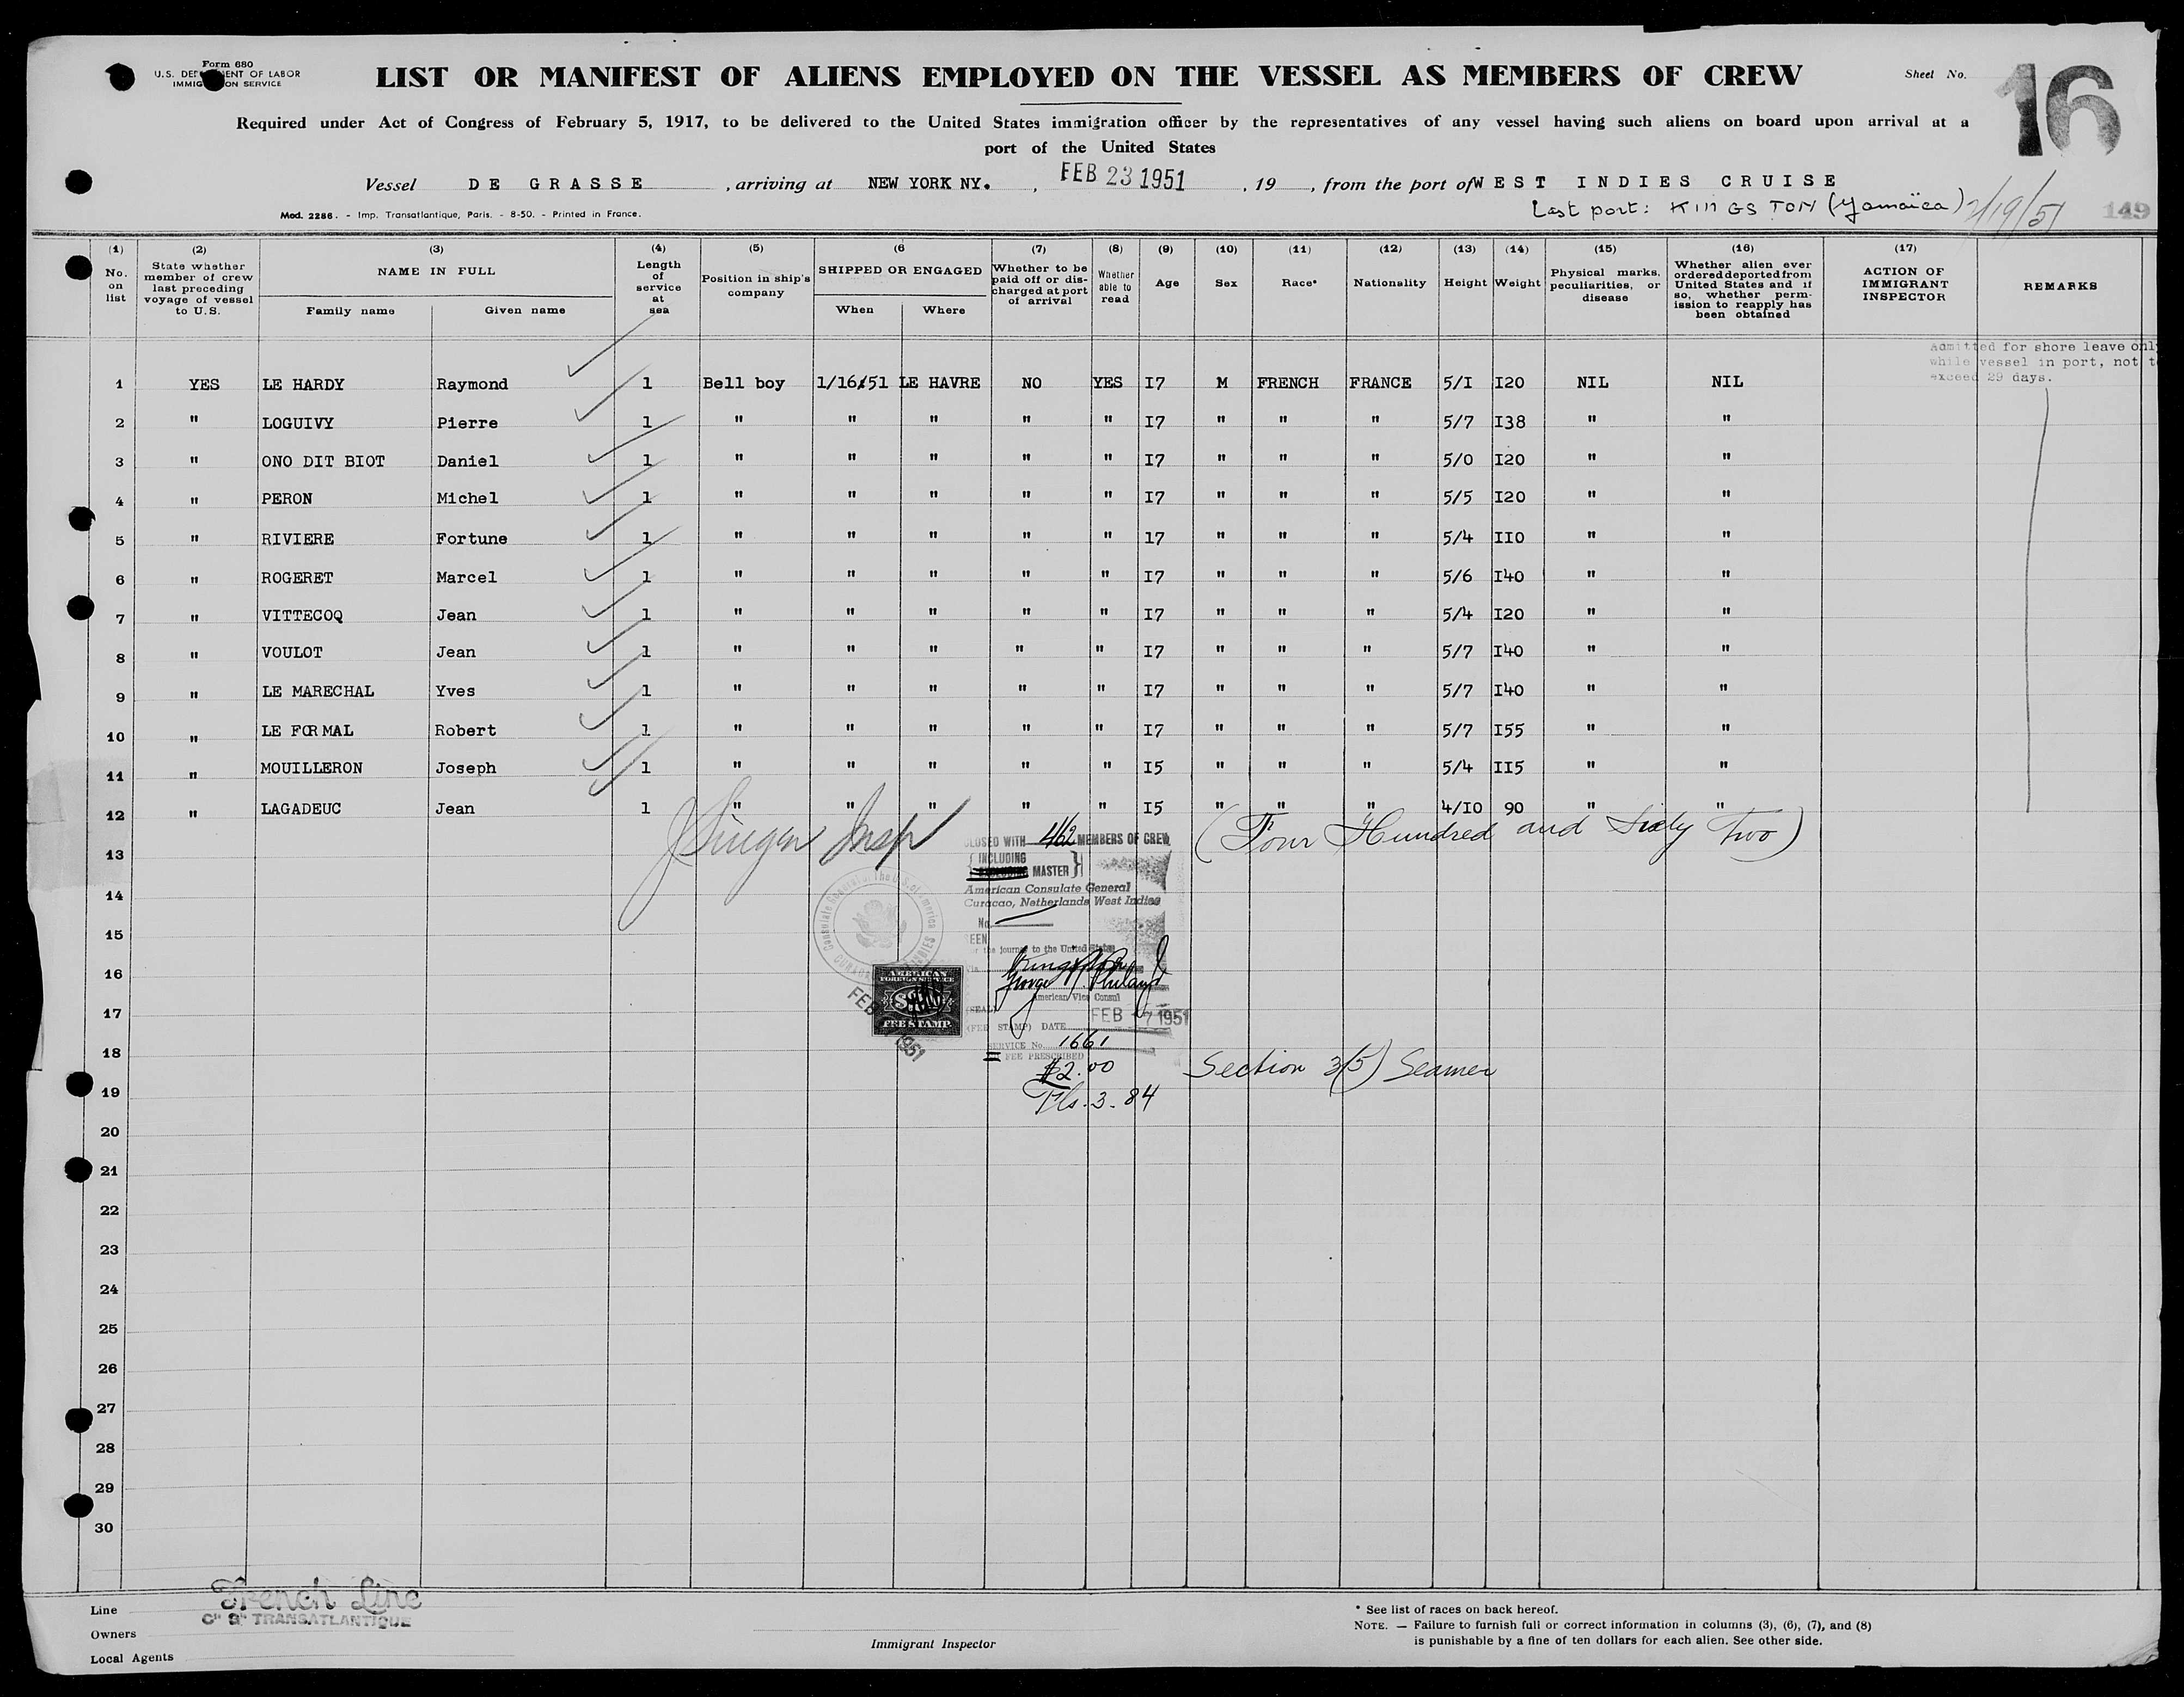 Form 680
U.S. DEPARTMENT OF LABOR
IMMIGRATION SERVICE
LIST OR MANIFEST OF ALIENS EMPLOYED ON THE VESSEL AS MEMBERS OF CREW
Sheet No. 16
Required under Act of Congress of February 5, 1917, to be delivered to the United States immigration officer by the representatives of any vessel having such aliens on board upon arrival at a
port of the United States
Vessel DE GRASSE, arriving at NEW YORK NY., FEB 23 1951, 19, from the port of WEST INDIES CRUISE
Mod. 2286. - Imp. Transatlantique, Paris. - 8-50. - Printed in France.
Last port: KINGSTON (Yamaïca) 2/19/51 149
(1) No. on list
(2) State whether member of crew last preceding voyage of vessel to U.S.
(3) NAME IN FULL Family name Given name
(4) Length of service at sea
(5) Position in ship's company
(6 SHIPPED OR ENGAGED When Where
(7) Whether to be paid off or discharged at port of arrival
(8) Whether able to read
(9) Age
(10) Sex
(11) Race*
(12) Nationality
(13) Height
(14) Weight
(15) Physical marks, peculiarities, or disease
(16) Whether alien ever ordered deported from United States and if so, whether permission to reapply has been obtained
(17) ACTION OF IMMIGRANT INSPECTOR
REMARKS
Admitted for shore leave onl
while vessel in port, not t
exceed 29 days.
1 YES LE HARDY Raymond 1 Bell boy 1/16/51 LE HAVRE NO YES I7 M FRENCH FRANCE 5/I I20 NIL NIL
2 " LOGUIVY Pierre 1 " " " " " I7 " " " 5/7 I38 " "
3 " ONO DIT BIOT Daniel 1 " " " " " I7 " " " 5/0 I20 " "
4 " PERON Michel 1 " " " " " I7 " " " 5/5 I20 " "
5 " RIVIERE Fortune 1 " " " " " 17 " " " 5/4 IIO " "
6 " ROGERET Marcel 1 " " " " " I7 " " " 5/6 I40 " "
7 " VITTECOQ Jean 1 " " " " " I7 " " " 5/4 I20 " "
8 " VOULOT Jean 1 " " " " " I7 " " " 5/7 I40 " "
9 " LE MARECHAL Yves 1 " " " " " I7 " " " 5/7 I40 " "
10 " LE FORMAL Robert 1 " " " " " I7 " " " 5/7 I55 " "
11 " MOUILLERON Joseph 1 " " " " " I5 " " " 5/4 II5 " "
12 " LAGADEUC Jean 1 " " " " " I5 " " " 4/IO 90 " "
13
14
15
16
17
18
19
20
21
22
23
24
25
26
27
28
29
30
JSinger Insp
CLOSED WITH 462 MEMBERS OF CREW
(Four Hundred and Sixty Two)
{INCLUDING
EXCLUDING MASTER}
American Consulate General
Curacao, Netherlands West Indies
No.
SEEN
for the journey to the United States
via Kingston
George
American Vice Consul
(SEAL)
FEB 17 1951
(FEE STAMP) DATE
SERVICE No. 1661
FEE PRESCRIBED
$2.00
Fls. 3.84
Section 3(5) Seamen
AMERICAN
FOREIGN SERVICE
FEE STAMP
FEB 1951
French Line
Cie Gle TRANSATLANTIQUE
Line
Owners
Local Agents
Immigrant Inspector
* See list of races on back hereof.
NOTE. — Failure to furnish full or correct information in columns (3), (6), (7), and (8)
is punishable by a fine of ten dollars for each alien. See other side.